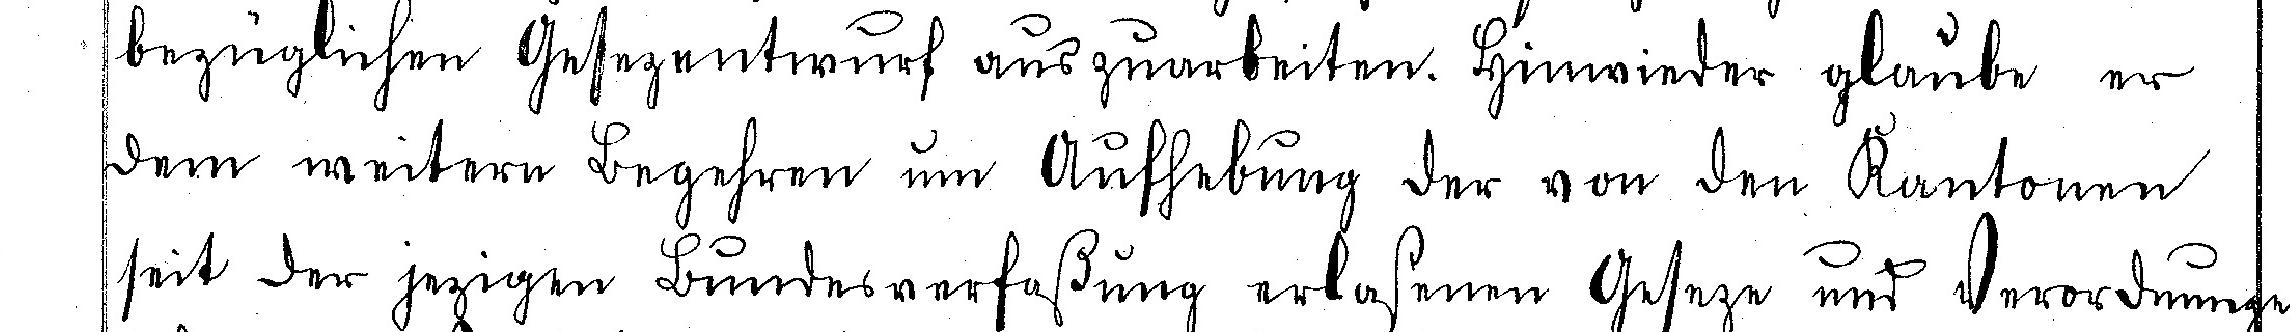 bezüglichen Gesezentwurf auszuarbeiten. Hinwieder glaube er
dem weitern Begehren um Aufhebung der von den Kantonen
seit der jezigen Bundesverfaßung erlaßenen Geseze und Verordnunge